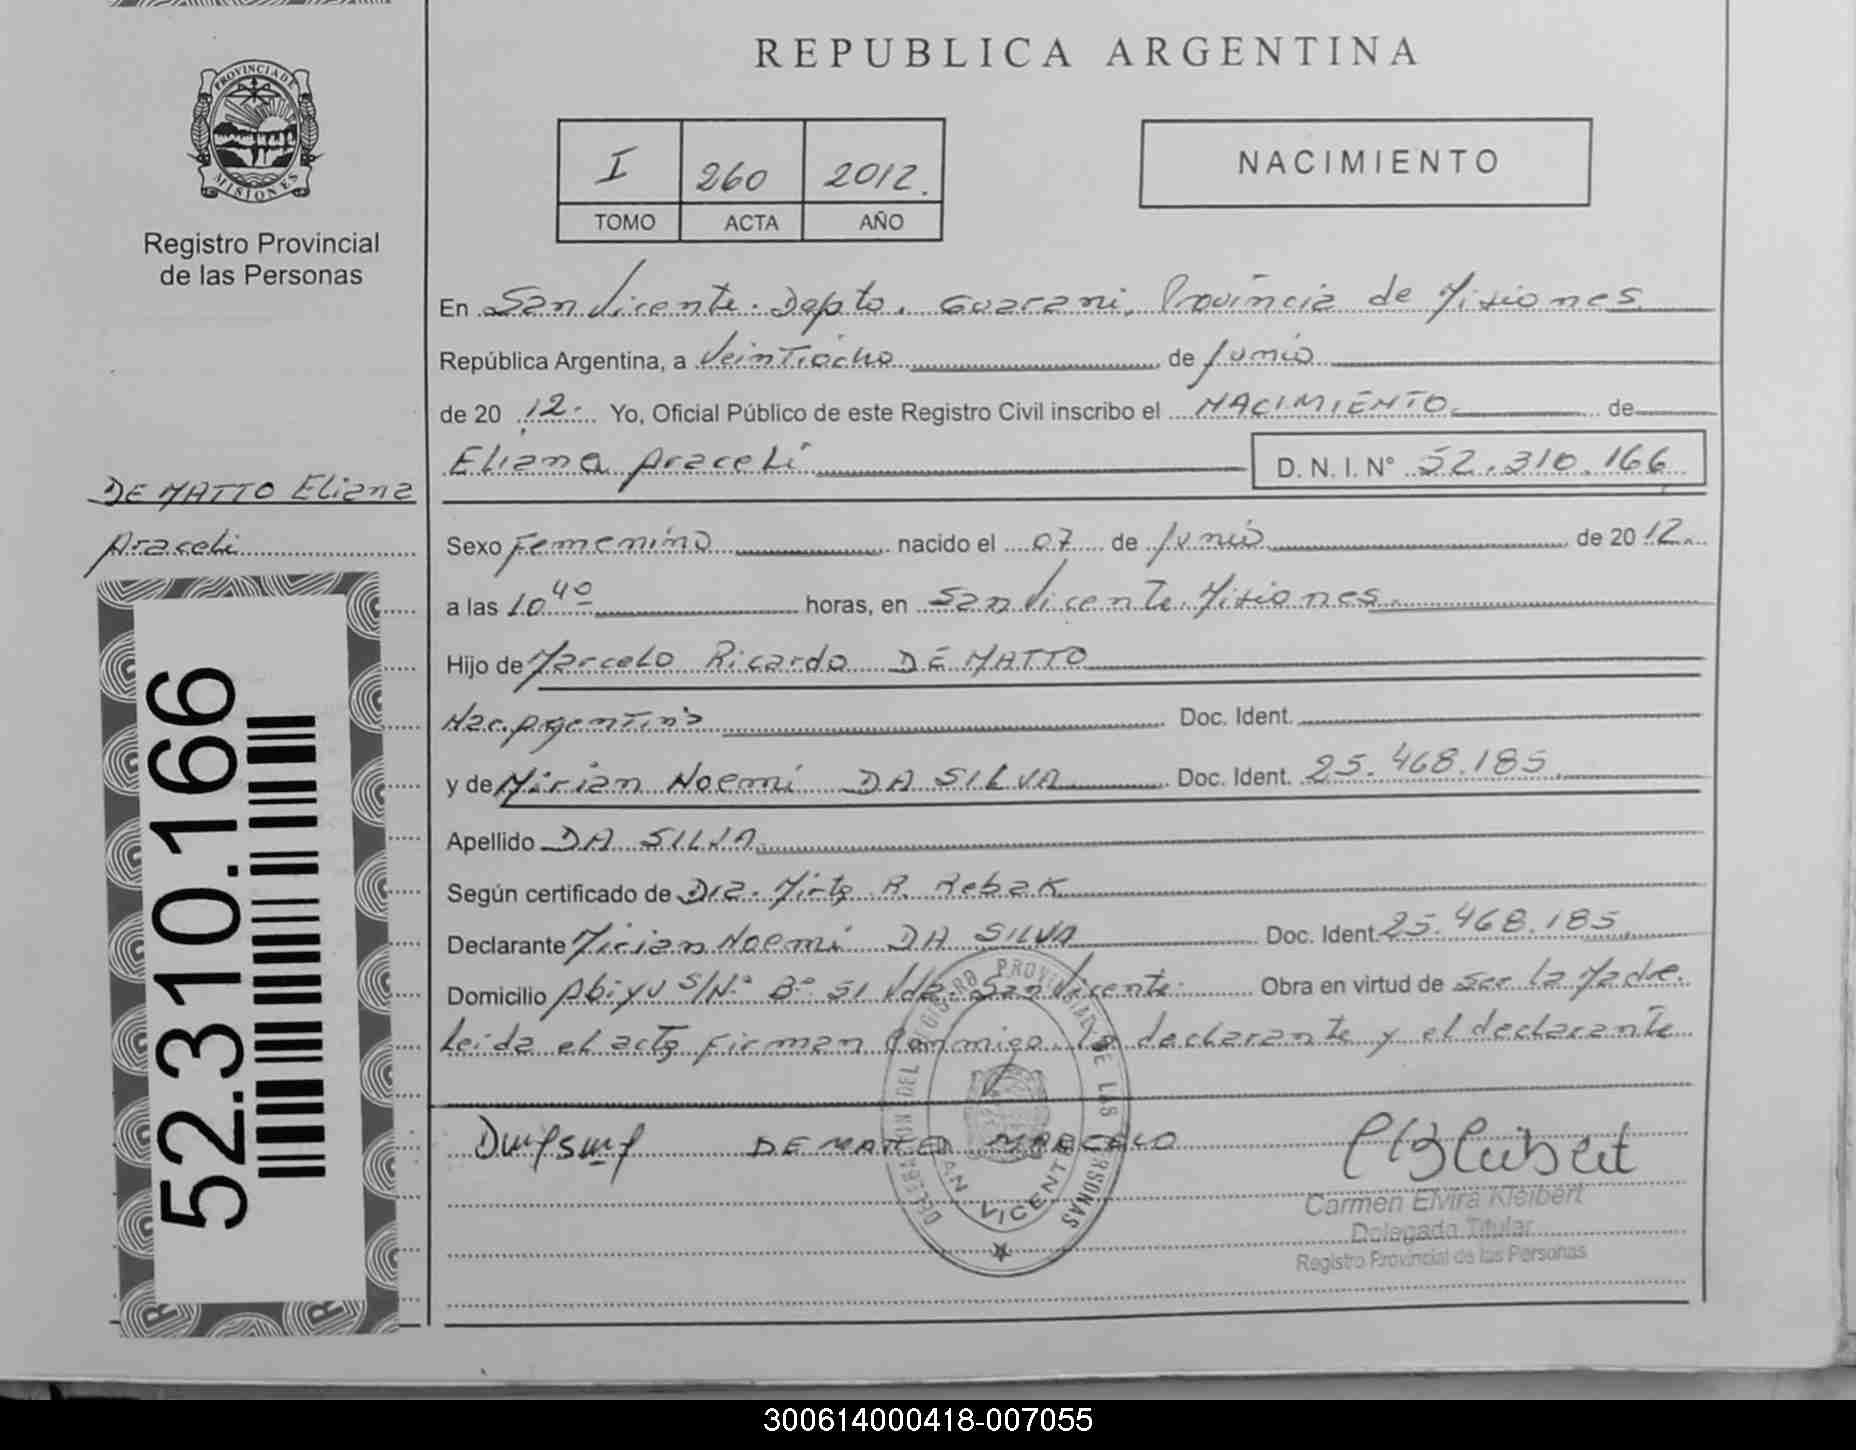 PROVINCIA DE
MISIONES
Registro Provincial
de las Personas
REPUBLICA ARGENTINA
I 260 2012.
TOMO ACTA AÑO
NACIMIENTO
En San Vicente. Depto. Guarani, Provincia de Misiones
República Argentina, a Veintiocho de Junio
de 20 12. Yo, Oficial Público de este Registro Civil inscribo el NACIMIENTO de
Eliana Araceli D. N. I. Nº 52.310.166
DE MATTO Eliana
Araceli
Sexo Femenino nacido el 07 de Junio de 20 12.
a las 10 40 horas, en San Vicente. Misiones
Hijo de Marcelo Ricardo DE MATTO
Nac. Argentina Doc. Ident.
y de Mirian Noemi DA SILVA Doc. Ident. 25.468.185.
Apellido DA SILVA
Según certificado de Dra. Mirta R. Rebak
Declarante Mirian Noemi DA SILVA Doc. Ident. 25.468.185.
Domicilio Abiyu S/Nº Bº 51 Vdas. San Vicente. Obra en virtud de ser la Madre.
Leida el acta firman conmigo la declarante y el declarante
52.310.166
DE MATTO MARCELO
DELEGACION DEL REGISTRO PROVINCIAL DE LAS PERSONAS
SAN VICENTE
Carmen Elvira Kleibert
Delegada Titular
Registro Provincial de las Personas
300614000418-007055